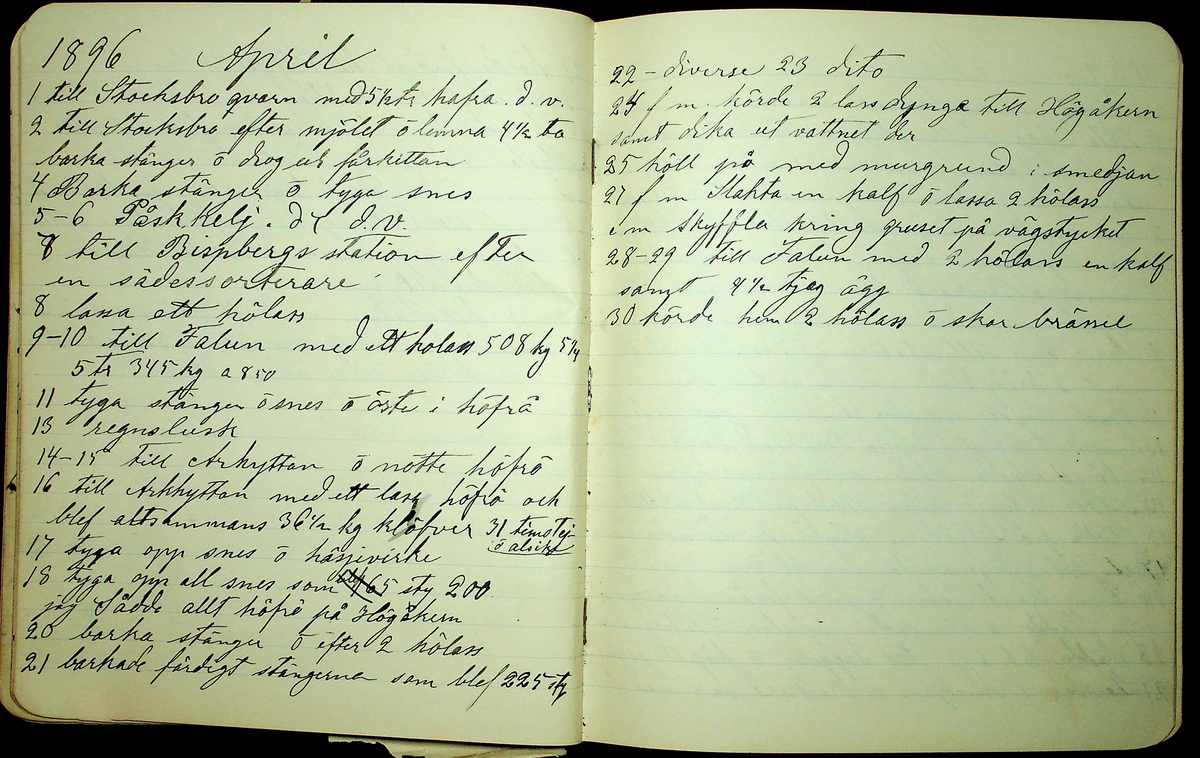 1896 April
1 till Stocksbro qvarn med 5 ktr hafra. d. v.
2 till Stocksbro efter mjölet ö lemna 4 1/2 to
barka stänger ö drog ut fårkettan
4 Barka stänger ö tyga snes
5-6 Påskhelj. d d. v.
8 till Bispbergs station efter
en sädessorterare
8 lassa ett hölass
9-10 till Falun med ett holass 508 kg 5 1/4
5 tr 345 kg a 850
11 tyga stänger ö snes ö öste i höfrö
13 regnslusk
14-15 till Arkhyttan ö nötte höfrö
16 till Arkhyttan med ett lass höfrö och
blef altsammans 36 1/2 kg klöfver 31 timotej
ö alsike
17 tyga opp snes ö hässjevirke
18 tyga opp all snes som 65 sty 200
jag Sådde allt höfrö på Högåkern
20 barka stänger ö efter 2 hölass
21 barkade färdigt stängerna som blef 225 sty
22 - diverse 23 dito
24 f m. körde 2 lass dynga till Högåkern
samt dika ut vattnet der
25 höll på med murgrund i smedjan
27 f m Slakta en kalf ö lassa 2 hölass
e m skyffla kring gruset på vägstycket
28-29 till Falun med 2 hölass en kalf
samt 4 1/2 tjog ägg
30 körde hem 2 hölass ö skar brännel